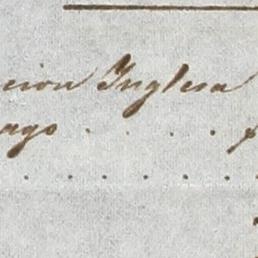 cion Inglesa
ago . . . . p
. . . . . . . .